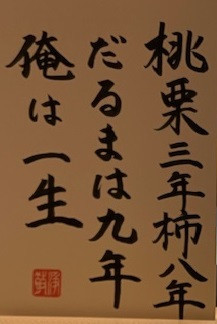 桃栗三年柿八年
だるまは九年
俺は一生